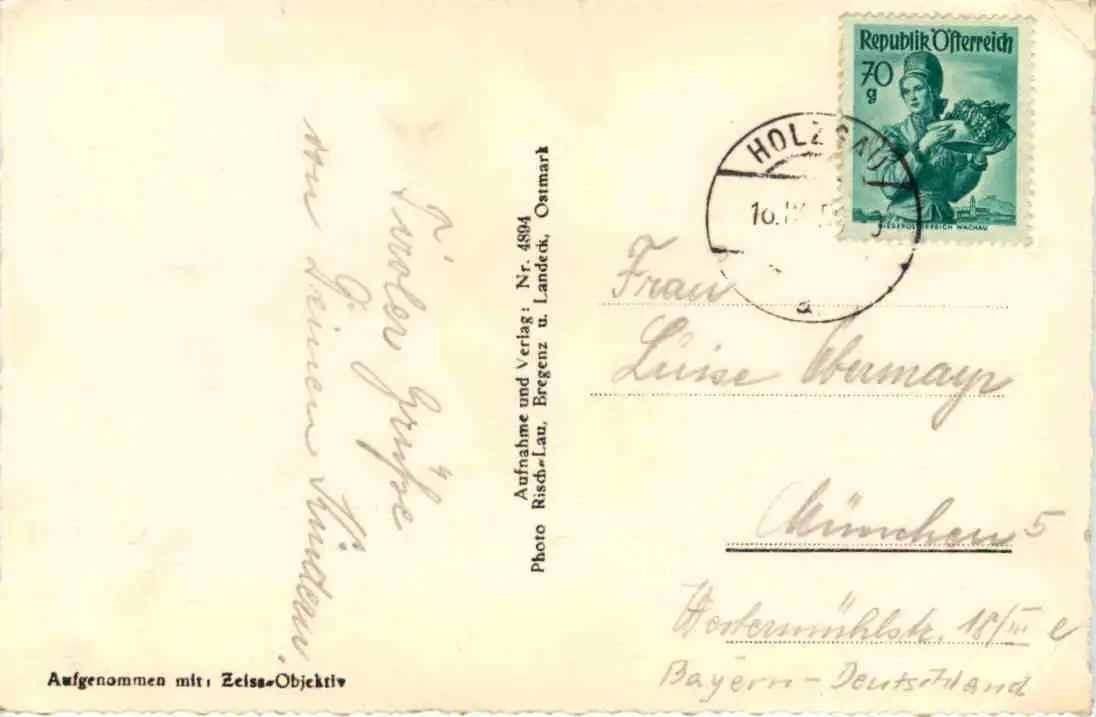 Tiroler Grüße
von Deinen Kindern.
Aufgenommen mit: Zeiss-Objektiv
Aufnahme und Verlag: Nr. 4894
Photo Risch-Lau, Bregenz u. Landeck, Ostmark
Republik Österreich
70
g
NIEDERÖSTERREICH WACHAU
HOLZGAU
a
Frau
Luise Obermayr
München 5
Westermühlstr. 18/III
Bayern - Deutschland